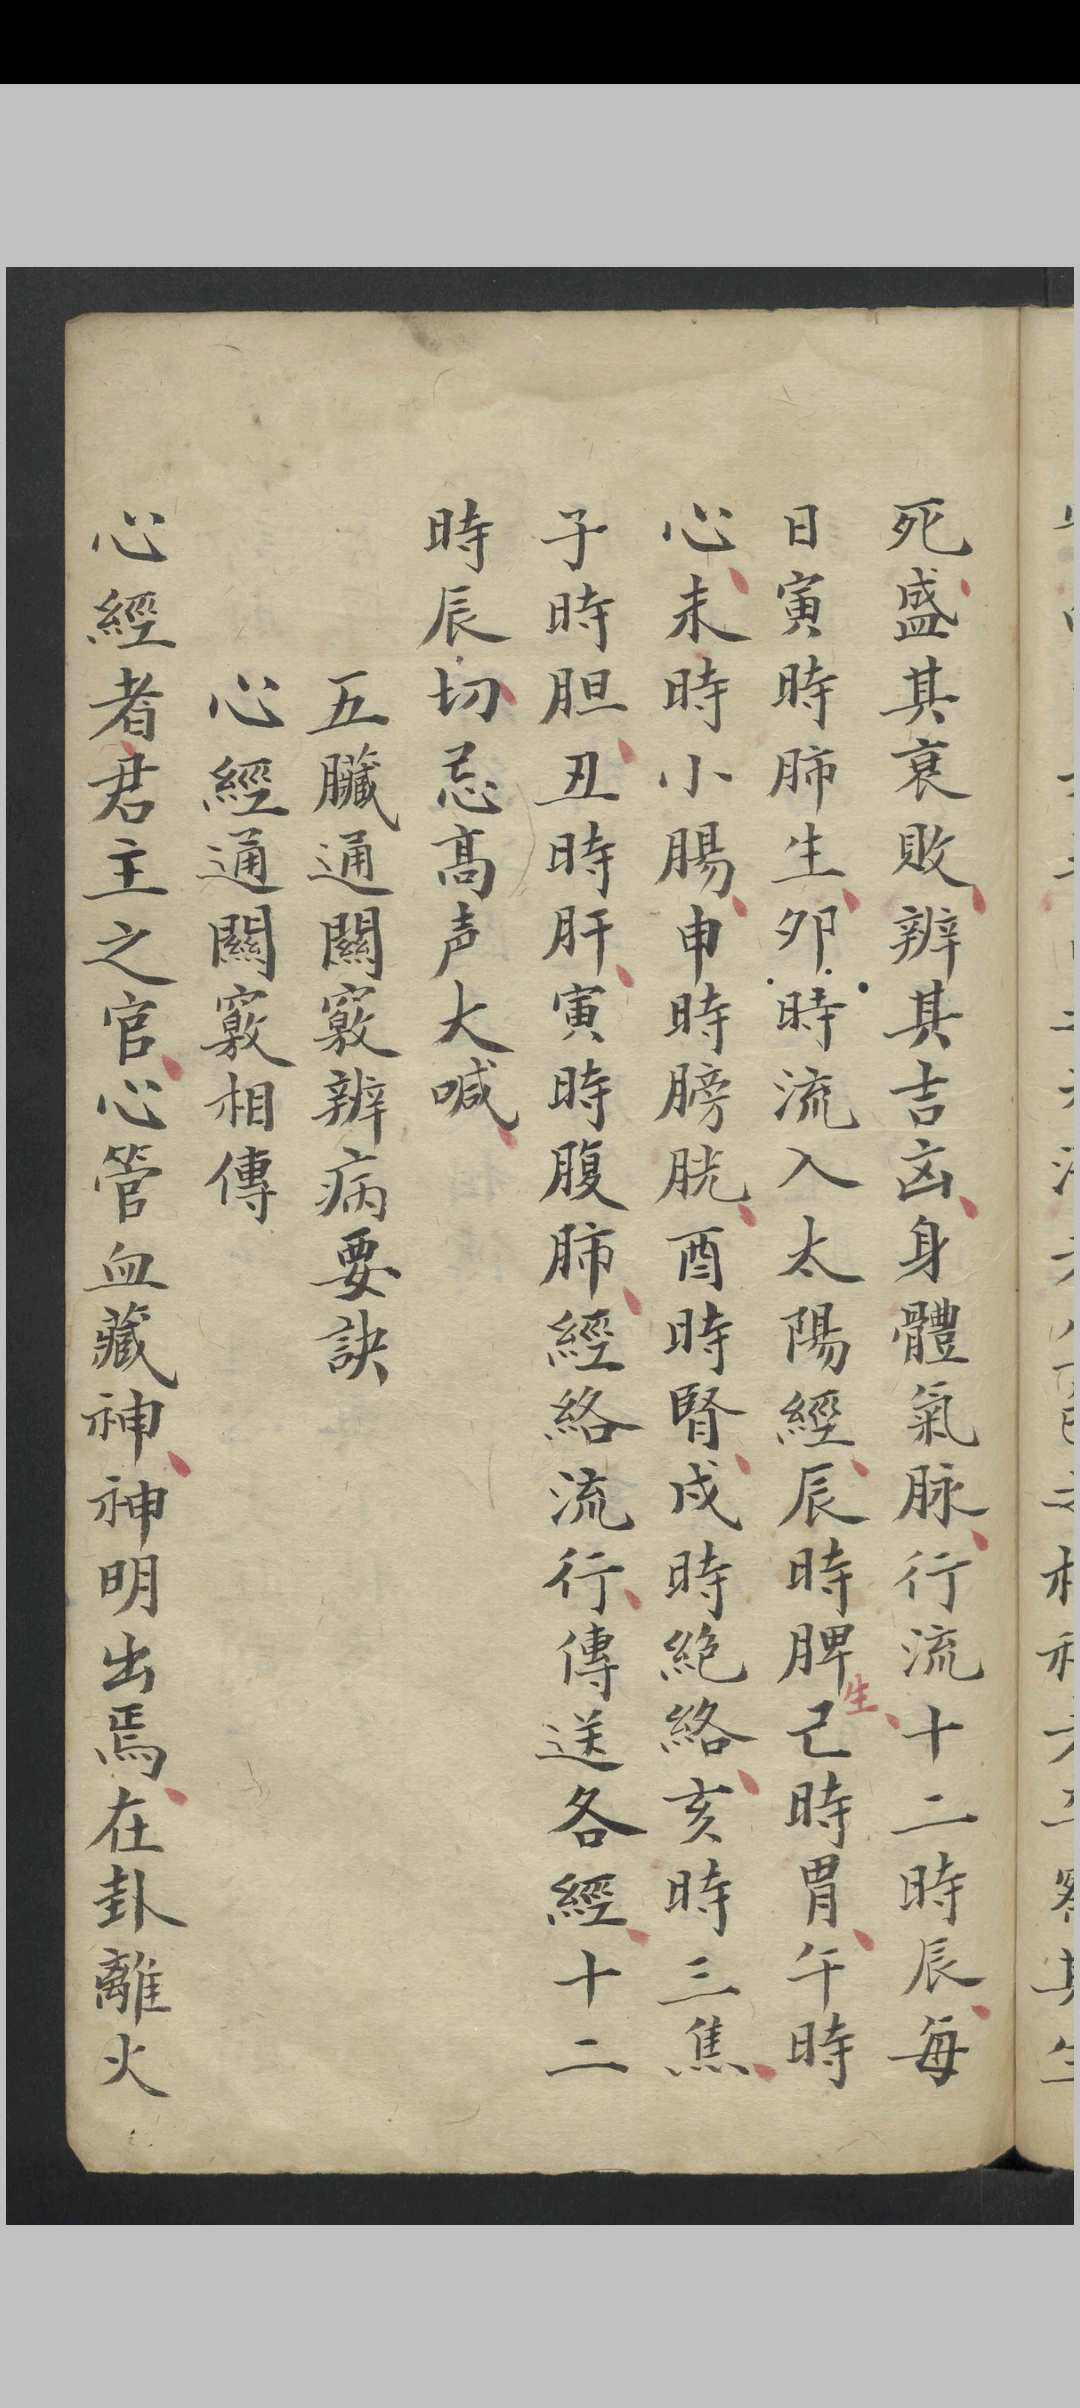 死盛其衰敗辨其吉凶身體氣脉行流十二時辰每
日寅時肺生卯時流入太陽經辰時脾生己時胃午時
心未時小腸申時膀胱酉時腎戌時絶絡亥時三焦
子時胆丑時肝寅時腹肺經絡流行傳送各經十二
時辰切忌高声大喊
五臟通關竅辨病要訣
心經通關竅相傳
心經者君主之官心管血藏神神明出焉在卦離火